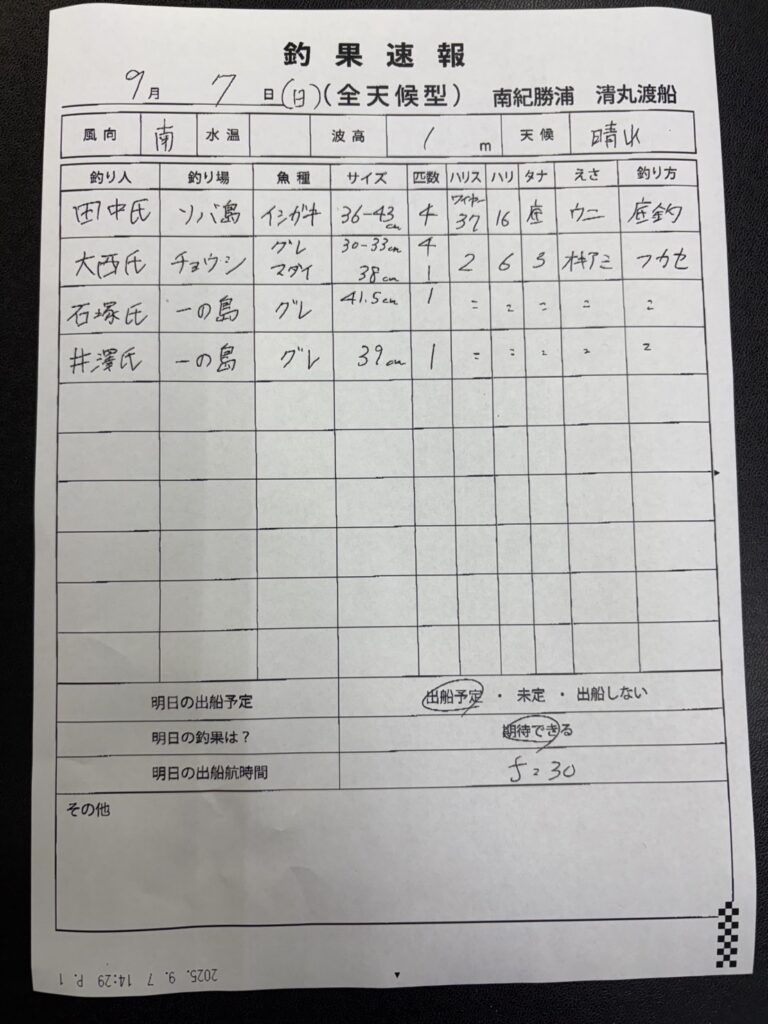 釣果速報
9月 7日(日)(全天候型) 南紀勝浦 清丸渡船
風向 南 水温 波高 1 m 天候 晴れ
釣り人 釣り場 魚種 サイズ 匹数 ハリス ハリ タナ えさ 釣り方
田中氏 ソバ島 イシガキ 36-43cm 4 ワイヤー37 16 底 ウニ 底釣
大西氏 チョウシ グレ 30-33cm 4 2 6 3 オキアミ フカセ
マダイ 38cm 1
石塚氏 一の島 グレ 41.5cm 1 〃 〃 〃 〃 〃
井澤氏 一の島 グレ 39cm 1 〃 〃 〃 〃 〃
明日の出船予定 出船予定 ・ 未定 ・ 出船しない
明日の釣果は? 期待できる
明日の出船航時間 5:30
その他
2025. 9. 7 14:29 P. 1